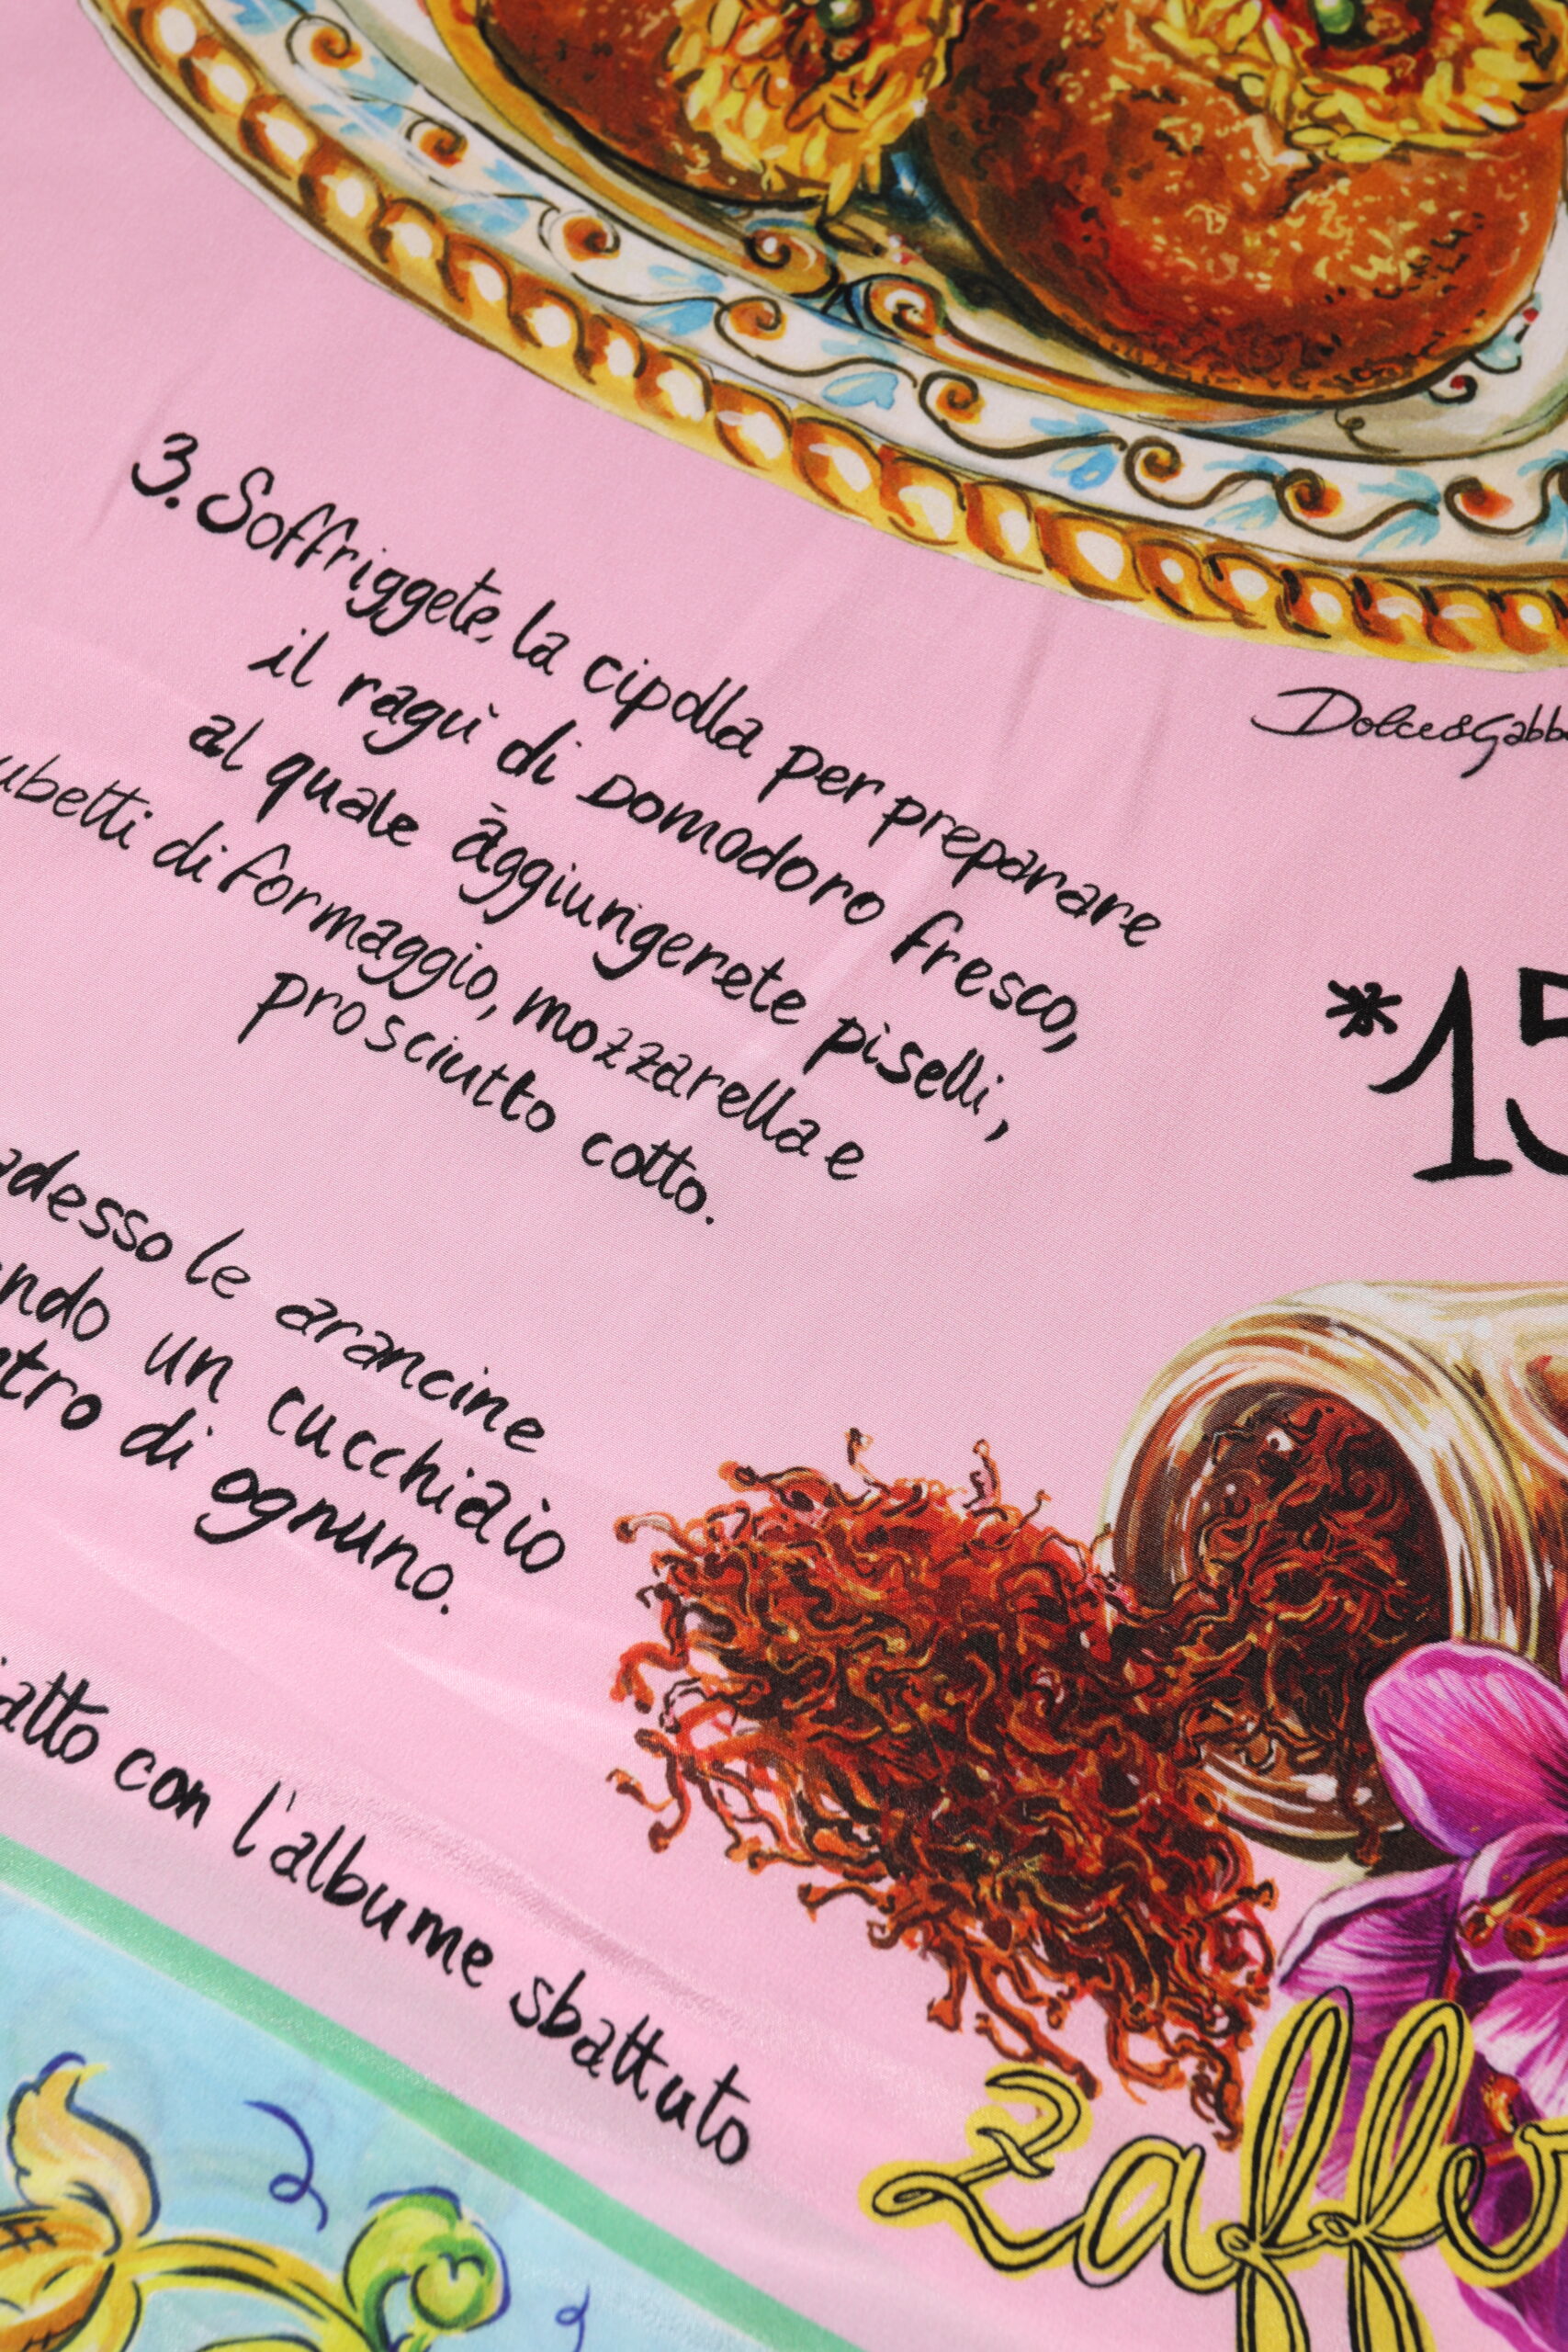 3. Soffriggete la cipolla per preparare
il ragù di Domodoro fresco,
al quale aggiungerete piselli,
ubetti di formaggio, mozzarella e
prosciutto cotto.
Dolce&Gabb
*15
adesso le arancine
ndo un cucchiaio
ntro di ognuno.
iatto con l'albume sbattuto
Zaffe